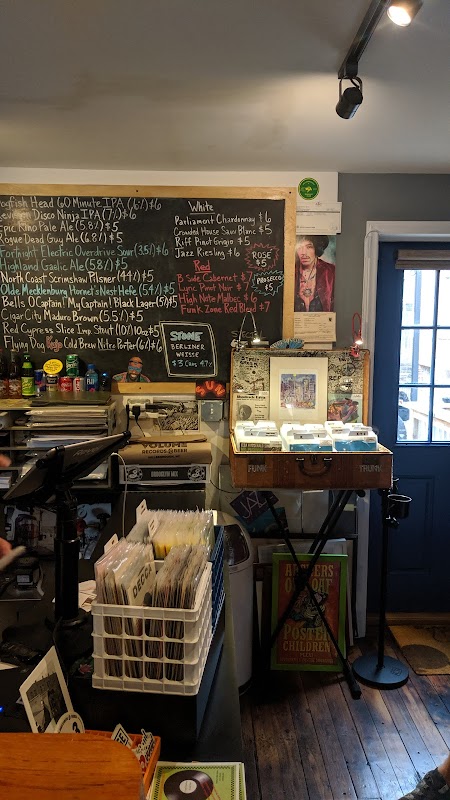 Dogfish Head 60 Minute IPA (6%) $6
Disco Ninja IPA (7%) $6
Epic Rino Pale Ale (5%) $5
Rogue Dead Guy Ale (6.8%) $5
Fortnight Electric Overdrive Sour (3.5%) $6
Highland Gaelic Ale (5.8%) $5
North Coast Scrimshaw Pilsner (4.4%) $5
Olde Mecklenburg Hornet's Nest Hefe (5.4%) $5
Bells O Captain! My Captain! Black Lager (5%) $5
Cigar City Maduro Brown (5.5%) $5
Red Cypress Slice Imp. Stout (10%) 10oz $5
Flying Dog Cold Brew Nitro Porter (6%) $6
White
Parliament Chardonnay $6
Crowded House Sauv Blanc $5
Riff Pinot Grigio $5
Jazz Riesling $6
Red
B Side Cabernet $7
Lyric Pinot Noir $7
High Note Malbec $6
Funk Zone Red Blend $7
ROSÉ
$5
PROSECCO
$5
STONE
BERLINER
WEISSE
$3 Cans 4.7%
VOLUME
RECORDS & BEER
BROOKLYN MIX
FUNK
TRUNK
JAZZ
DECCA
ARCHERS
OF LOAF
POSTER
CHILDREN